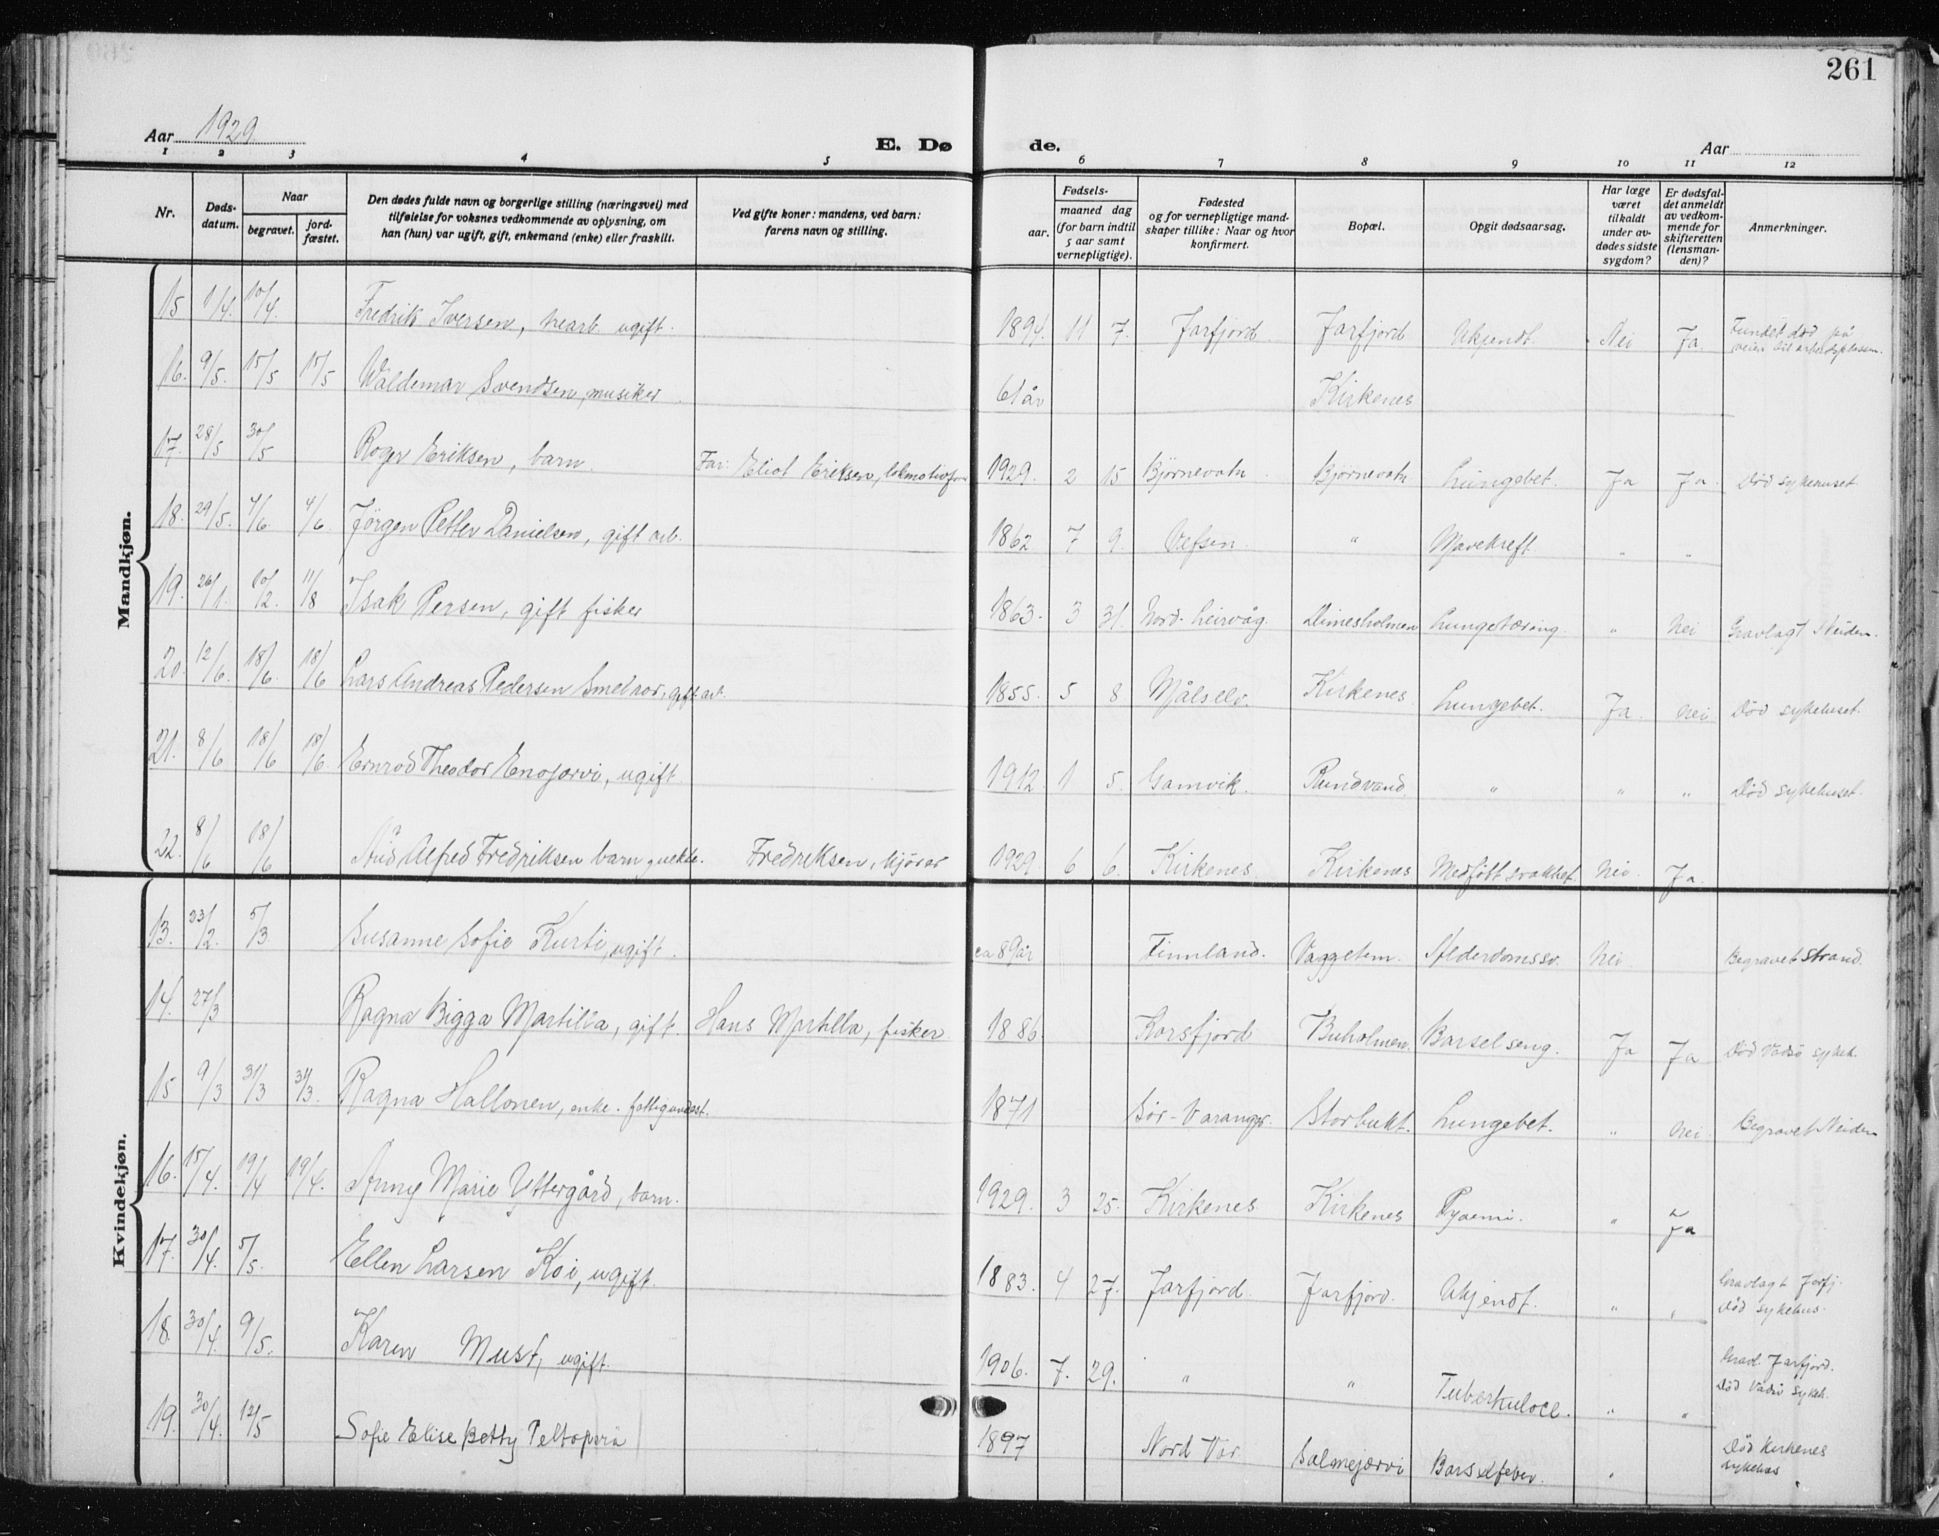 261
Aar 1929
E. Dø de.
Aar
1 2 3 4 5 6 7 8 9 10 11 12
Nr.
Døds-datum.
Naar
begravet.
jord-fæstet.
Den dødes fulde navn og borgerlige stilling (næringsvei) med tilføielse for voksnes vedkommende av oplysning, om han (hun) var ugift, gift, enkemand (enke) eller fraskilt.
Ved gifte koner: mandens, ved barn: farens navn og stilling.
Fødsels-
aar.
maaned dag (for barn indtil 5 aar samt vernepligtige).
Fødested og for vernepligtige mand-skaper tillike: Naar og hvor konfirmert.
Bopæl.
Opgit dødsaarsag.
Har læge været tilkaldt under av-dødes sidste sygdom?
Er dødsfal-det anmeldt av vedkom-mende for skifteretten (lensman-den)?
Anmerkninger.
Mandkjøn.
15 1/4. 10/4. Fredrik Iversen, ugift. 1894 11 7. Jarfjord. Jarfjord Ukjendt. Nei Ja. Fundet død på veien til arbeidsplassen.
16. 9/5. 15/5 15/5 Waldemar Svendsen, musiker 61 år Kirkenes
17. 28/5 30/5 Roger Eriksen, barn. Far: Eliot Eriksen, 1929. 2 15 Bjørnevatn Bjørnevatn Lungebet. Ja Ja. Død sykehuset
18. 29/5. 4/6. 4/6. Jørgen Petter Danielsen, gift arb. 1862 7 9. Vefsen. " Mavekreft " "
19. 26/1. 10/2. 11/8 Isak Persen, gift fisker 1863. 3 31. Nord-Leirvåg. Lungetæring. " Nei Gravlagt Neiden.
20. 12/6. 18/6. 18/6 Lars Andreas Pedersen Smelror, gift arb. 1855. 5 8 Målselv. Kirkenes Lungebet. Ja. nei Død sykehuset.
21. 8/6 18/6 18/6. Theodor Enojærvi, ugift 1912 1 5. Gamvik. Rundvand. " " " Død sykehuset.
22. 8/6 18/6 Alfred Fredriksen barn Fredriksen, kjører 1929 6 6. Kirkenes Kirkenes Medfött svakhet Nei. Ja.
Kvindekjøn.
13. 23/2. 5/3 Susanne Sofie Kurti, ugift. ca 89 år Finnland. Vaggetem. Alderdomssv. Nei Begravet Strand.
14. 27/3 Ragna Bigga Martilla, gift. Hans Martilla, fisker 1886 Korsfjord Buholmen. Barselseng. Ja Ja Død Vadsö sykeh.
15 9/3 31/3 31/3. Ragna Hallonen, enke. 1871 Sør-Varanger. Storbukt. Lungebet. " nei Begravet Neiden
16. 15/4. 19/4 19/4. Anny Marie Yttergård, barn. 1929. 3 25. Kirkenes Kirkenes Pyæmi. " Ja
17. 30/4. 5/5. Ellen Larsen Koi, ugift. 1883. 4 27. Jarfjord. Jarfjord. Ukjendt. " " Gravlagt Jarfj. Död Sykehus.
18. 30/4. 9/5. Karen Must, ugift. 1906. 7. 29. " " Tuberkulose. " " Grad. Jarfjord. Död Vadsö Sykeh.
19. 30/4. 12/5 Sofie Elise Betty Peltoperä 1897 Nord Var Salmejærvi Barselfeber. " Död Kirkenes sykehus